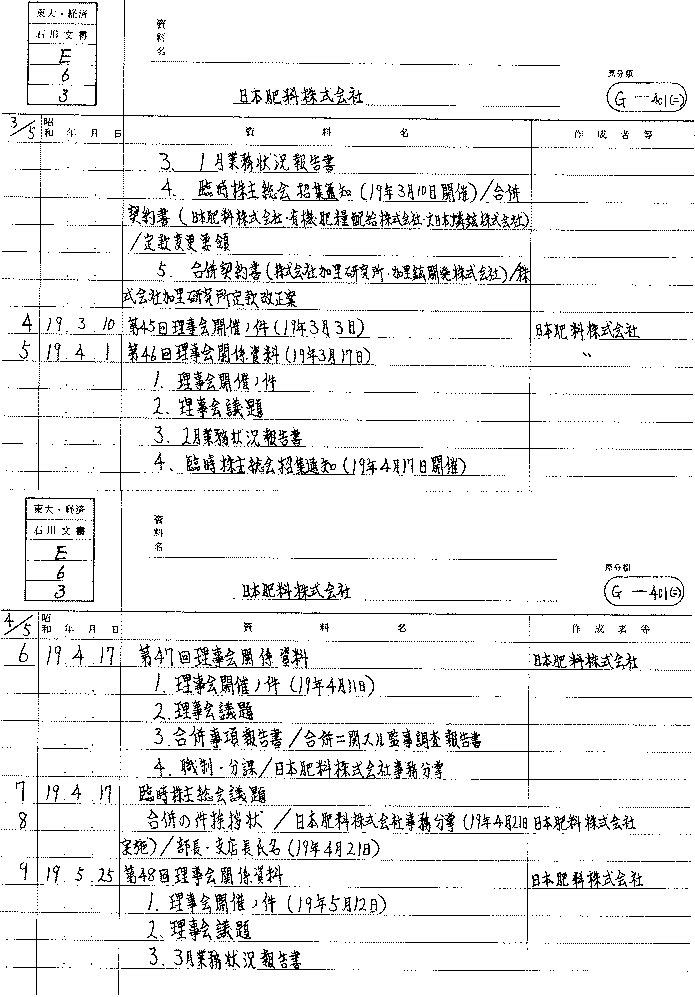 東大・経済
石川文書
E
6
3
資料名
日本肥料株式会社
原分類
G-401(ニ)
3/5 昭和 年 月 日 資料名 作成者等
3. 1月業務状況報告書
4. 臨時株主総会招集通知(19年3月10日開催)/合併
契約書(日本肥料株式会社・有機肥糧配給株式会社・大日本燐鉱株式会社)
/定款変更要領
5. 合併契約書(株式会社加里研究所・加里鉱開発株式会社)/株
式会社加里研究所定款改正案
4 19 3 10 第45回理事会開催ノ件(19年3月3日) 日本肥料株式会社
5 19 4 1 第46回理事会関係資料(19年3月17日) 〃
1. 理事会開催ノ件
2. 理事会議題
3. 2月業務状況報告書
4. 臨時株主総会招集通知(19年4月17日開催)
東大・経済
石川文書
E
6
3
資料名
日本肥料株式会社
原分類
G-401(ニ)
4/5 昭和 年 月 日 資料名 作成者等
6 19 4 17 第47回理事会関係資料 日本肥料株式会社
1. 理事会開催ノ件(19年4月11日)
2. 理事会議題
3. 合併事項報告書/合併ニ関スル監事調査報告書
4. 職制・分課/日本肥料株式会社事務分掌
7 19 4 17 臨時株主総会議題
8 合併の件挨拶状/日本肥料株式会社事務分掌(19年4月21日 日本肥料株式会社
実施)/部長・支店長氏名(19年4月21日)
9 19 5 25 第48回理事会関係資料 日本肥料株式会社
1. 理事会開催ノ件(19年5月12日)
2. 理事会議題
3. 3月業務状況報告書